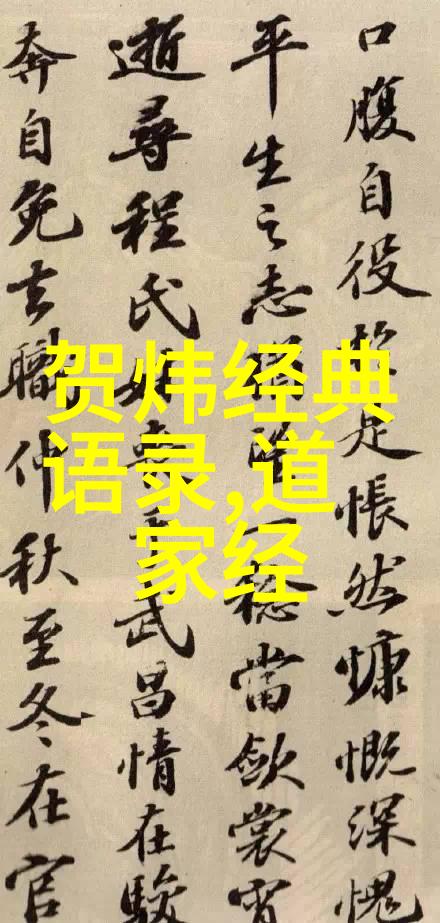 口腹自役於是悵然慷慨深愧
平生之志猶一稔當斂裳宵
逝尋程氏妹喪于武昌情在駿
奔自免去職仲秋至冬在官
贺炜经典
语录,道
家经